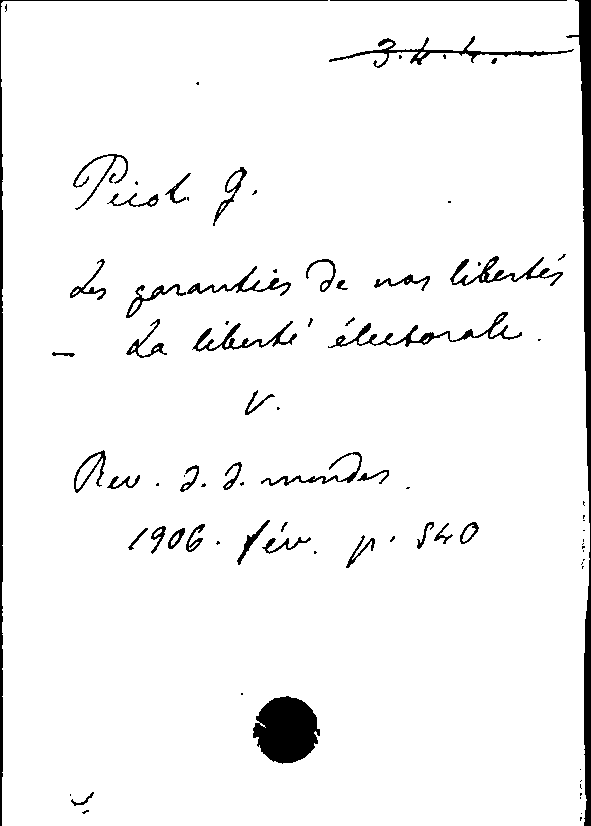 3.4.4.
Picot G.
Les garanties de nos libertés
- La liberté électorale.
V.
Rev. d. d. mondes.
1906. fév. p. 540